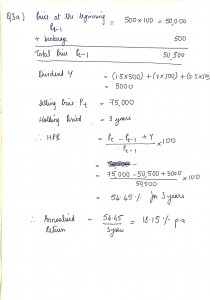 Q3a) Price at the beginning = 500 x 100 = 50,000
Pt-1
+ brokerage 500
Total Price Pt-1 50,500
Dividend Y = (1.5x500) + (2x500) + (2.5x500)
= 3000
Selling Price Pt = 75,000
Holding Period = 3 years
∴ HPR = Pt - Pt-1 + Y x 100
Pt-1
= 75,000 - 50,500 + 3000 x 100
50,500
= 54.45 % for 3 years
∴ Annualised = 54.45 = 18.15 % pa
Return 3 years